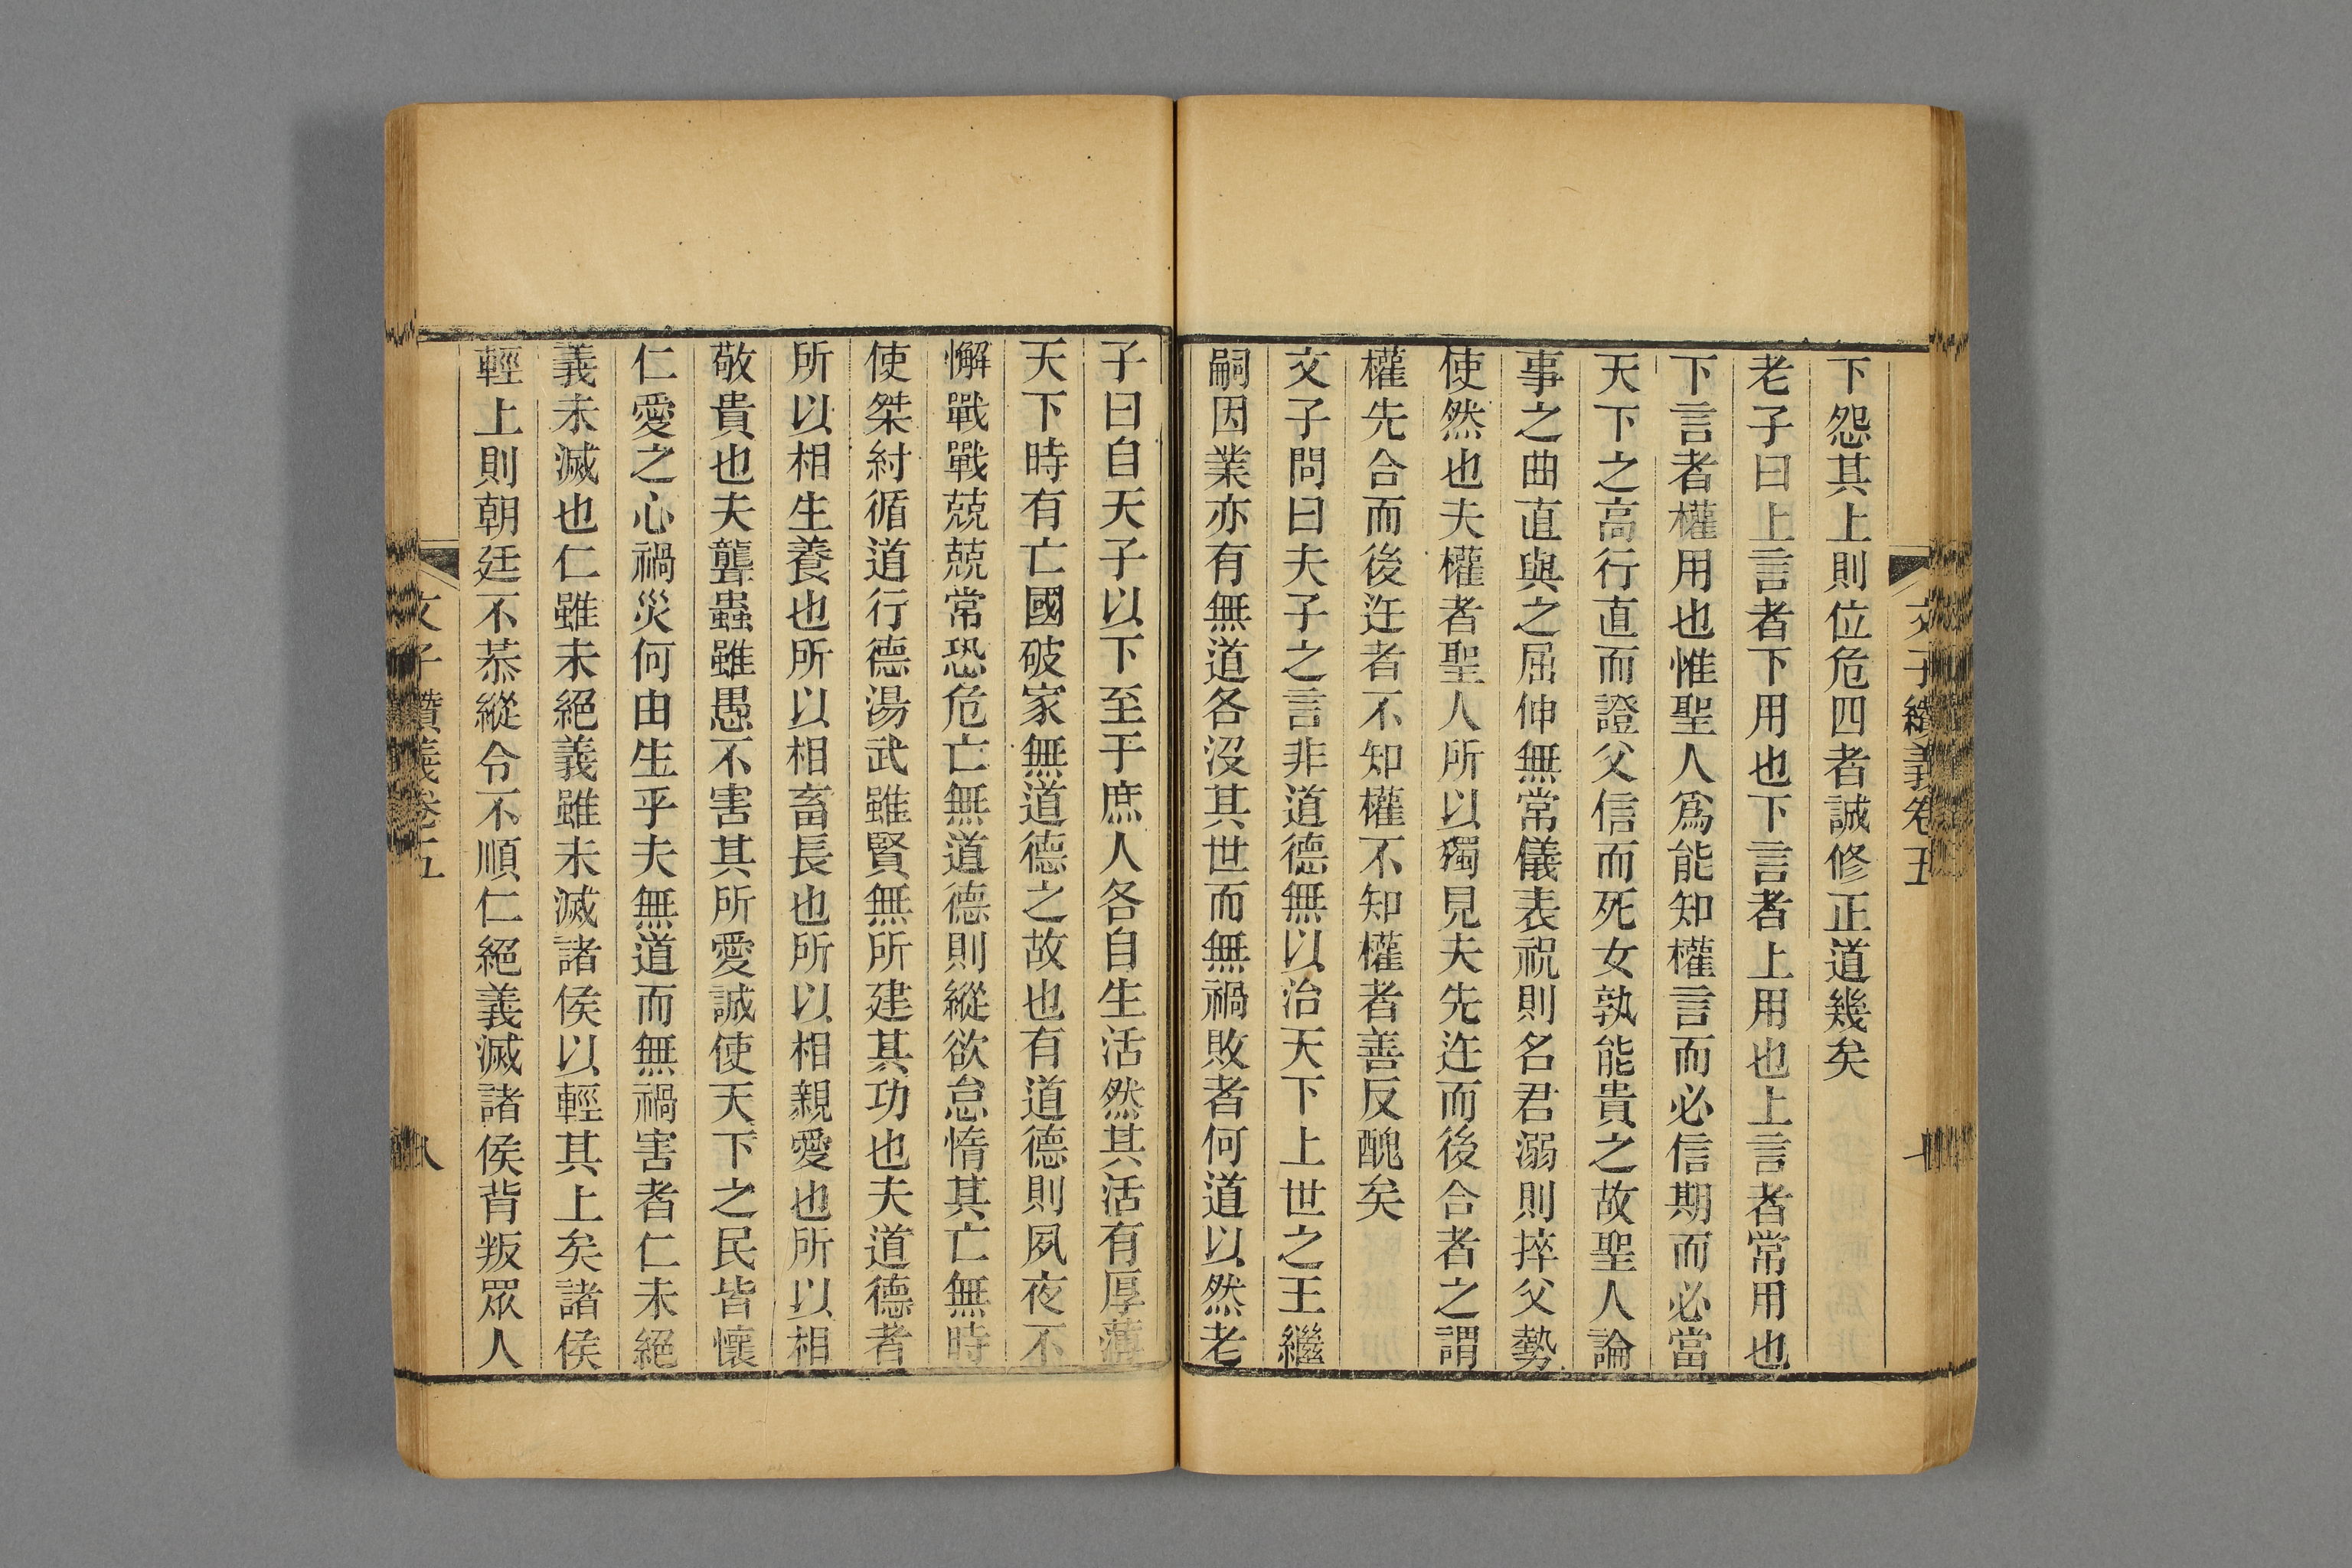 下怨其上則位危四者誠修正道幾矣
老子曰上言者下用也下言者上用也上言者常用也
下言者權用也惟聖人爲能知權言而必信期而必當
天下之高行直而證父信而死女孰能貴之故聖人論
事之曲直與之屈伸無常儀表祝則名君溺則捽父勢
使然也夫權者聖人所以獨見夫先迕而後合者之謂
權先合而後迕者不知權不知權者善反醜矣
文子問曰夫子之言非道德無以治天下上世之王繼
嗣因業亦有無道各沒其世而無禍敗者何道以然老
子曰自天子以下至于庶人各自生活然其活有厚薄
天下時有亡國破家無道德之故也有道德則夙夜不
懈戰戰兢兢常恐危亡無道德則縱欲怠惰其亡無時
使桀紂循道行德湯武雖賢無所建其功也夫道德者
所以相生養也所以相畜長也所以相親愛也所以相
敬貴也夫聾蟲雖愚不害其所愛誠使天下之民皆懷
仁愛之心禍災何由生乎夫無道而無禍害者仁未絕
義未滅也仁雖未絕義雖未滅諸侯以輕其上矣諸侯
輕上則朝廷不恭縱令不順仁絕義滅諸侯背叛眾人
文子纘義卷五
八